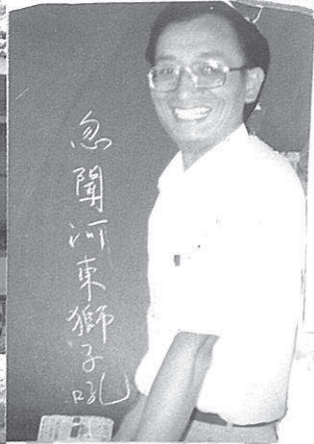 忽聞河東獅子吼